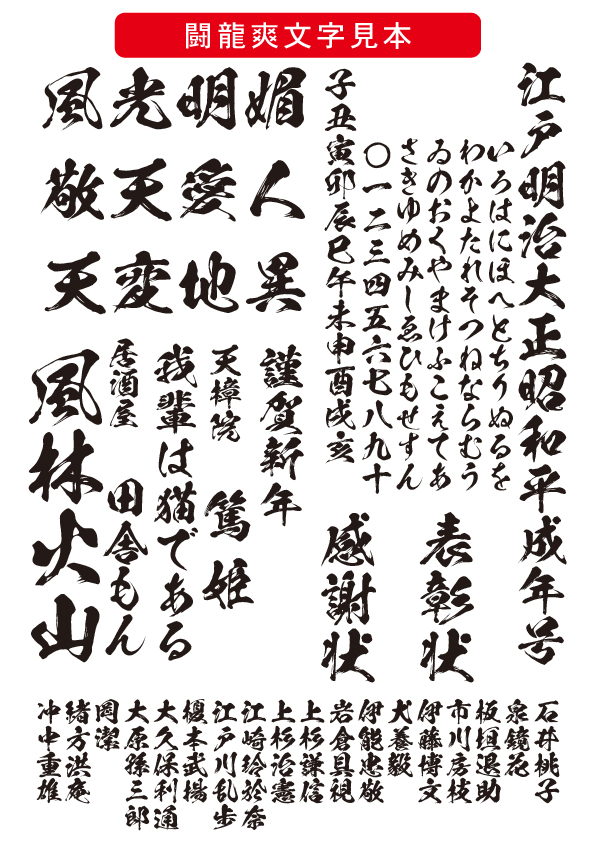 闘龍爽文字見本
江戸明治大正昭和平成年号
いろはにほへとちりぬるを
わかよたれそつねならむう
ゐのおくやまけふこえてあ
さきゆめみしゑひもせすん
〇一二三四五六七八九十
子丑寅卯辰巳午未申酉戌亥
表彰状
感謝状
風光明媚
敬天愛人
天変地異
謹賀新年
天樟院 篤姫
我輩は猫である
居酒屋 田舎もん
風林火山
石井桃子
泉鏡花
板垣退助
市川房枝
伊藤博文
犬養毅
伊能忠敬
岩倉具視
上杉謙信
上杉治憲
江崎玲於奈
江戸川乱歩
榎本武揚
大久保利通
大原孫三郎
岡潔
緒方洪庵
冲中重雄